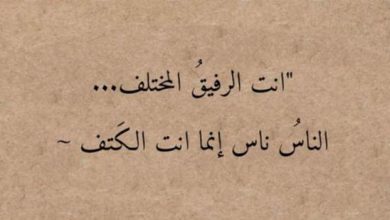 "انت الرفيقُ المختلف...
الناسُ ناس إنما انت الكَتف ~